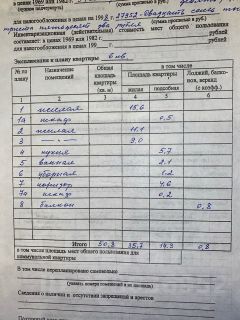 в ценах 1969 или 1982 г.
(сумма прописью в руб.)
для налогообложения в ценах на 1998 г. 27352 - двадцать семь ты
(сумма прописью в руб.)
Инвентаризационная (действительная) стоимость мест общего пользования
составляет: в ценах 1969 или 1982 г.
для налогообложения в ценах 199 г.
Экспликация к плану квартиры 6 кв.
№ по плану Назначение помещений Общая площадь квартиры (кв. м) в том числе
Площадь квартиры Лоджий, балконов, веранд (с коэфф.)
жилая подсобная
1 2 3 4 5 6
1 жилая 15,6
1а шкаф 0,5
2 жилая 11,1
3 -"- 9,0
4 кухня 5,7
5 ванная 2,1
6 уборная 1,2
7 коридор 4,6
7а шкаф 0,2
8 балкон 0,8
Итого 50,8 35,7 14,3 0,8
в том числе площадь мест общего пользования для
коммунальной квартиры
В том числе перепланировано самовольно
(указать номера помещений и их площадь)
Сведения о наличии и отсутствии запрещений и арестов